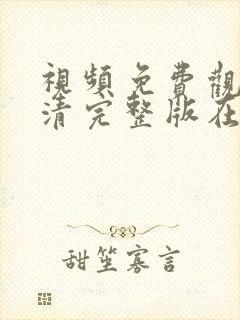 視頻免費觀
清完整版在
甜笙寡言